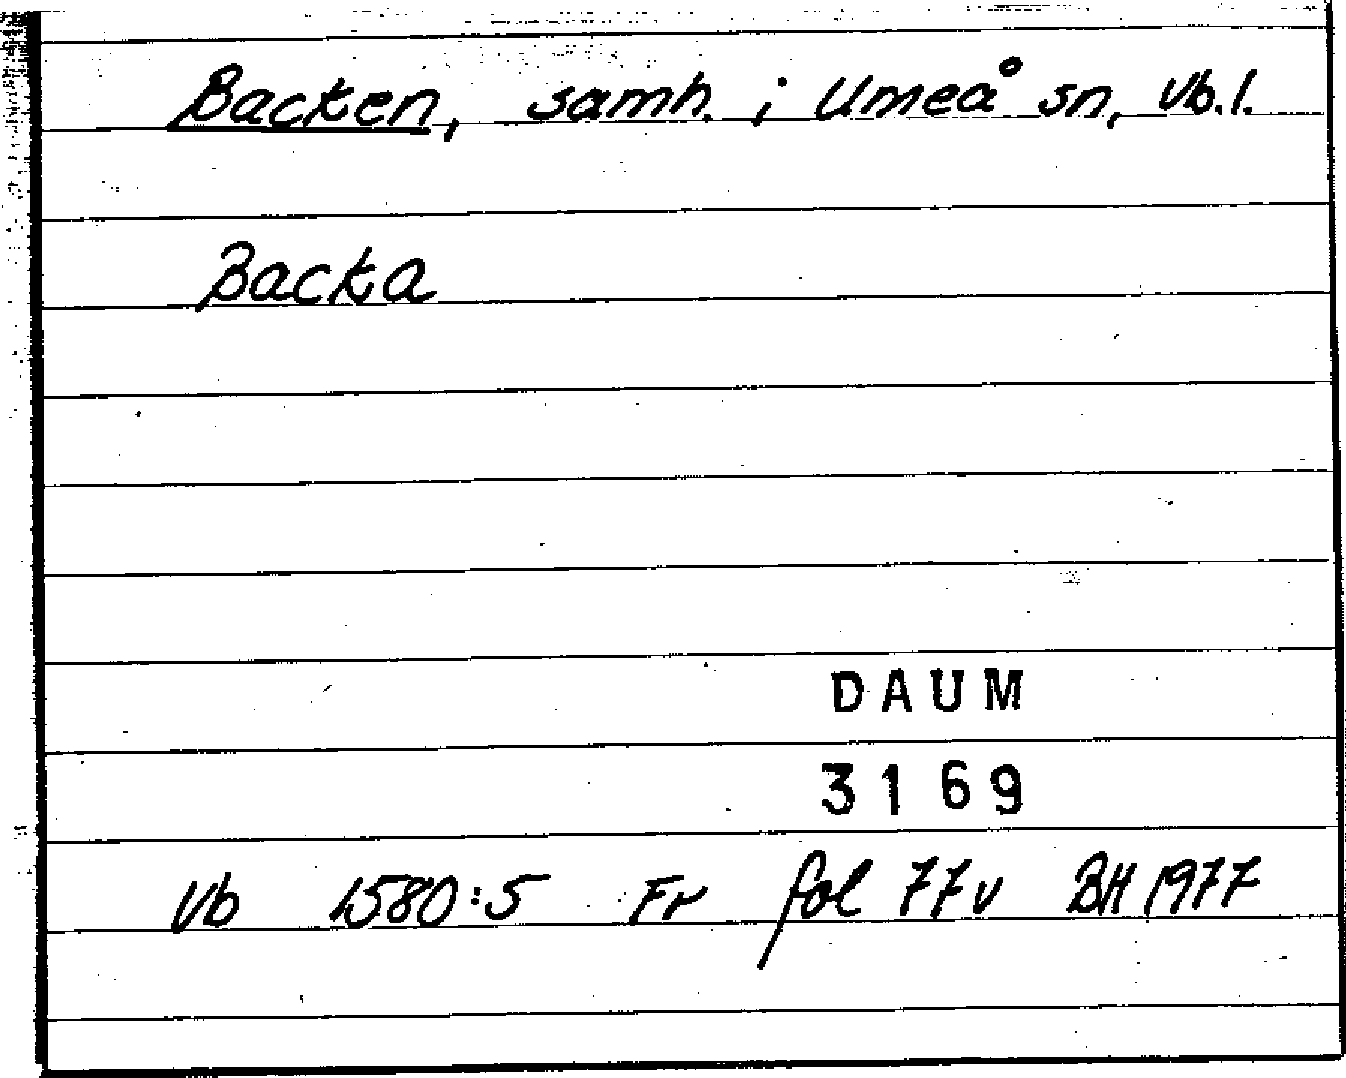 Backen, samh. i Umeå sn, Vb.l.
Backa
DAUM
3169
Vb 1580:5 Fr fol 77v BH 1977